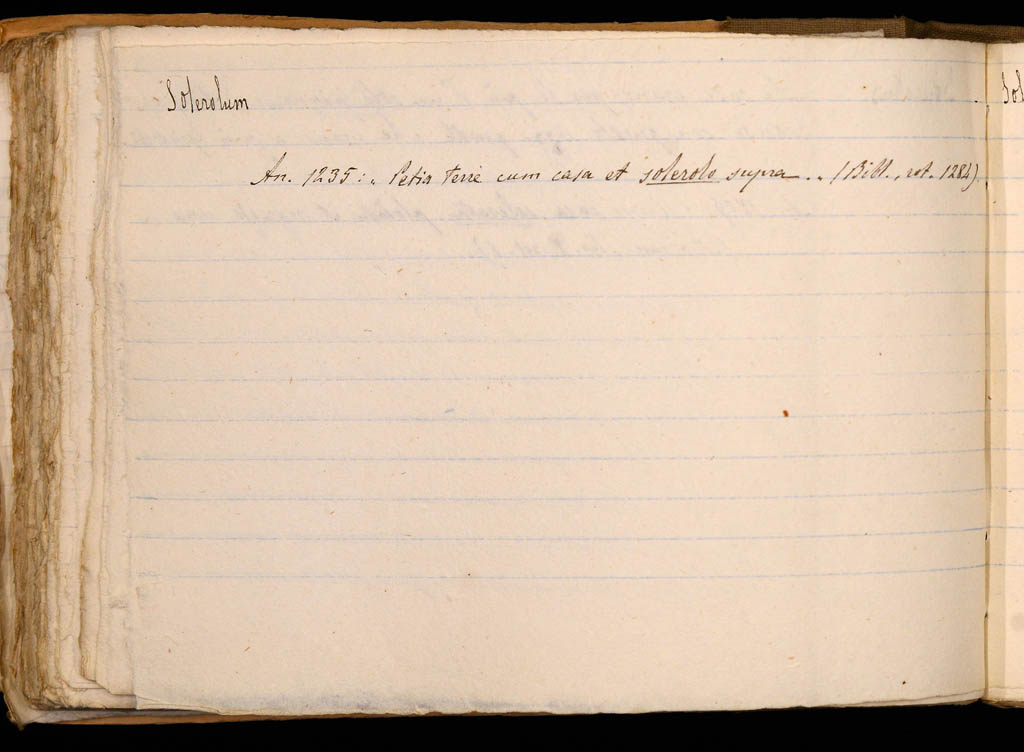 Solerolum
An. 1235: „ Petia terre cum casa et solerolo supra „ (Bibl., rot. 1284)
Sol